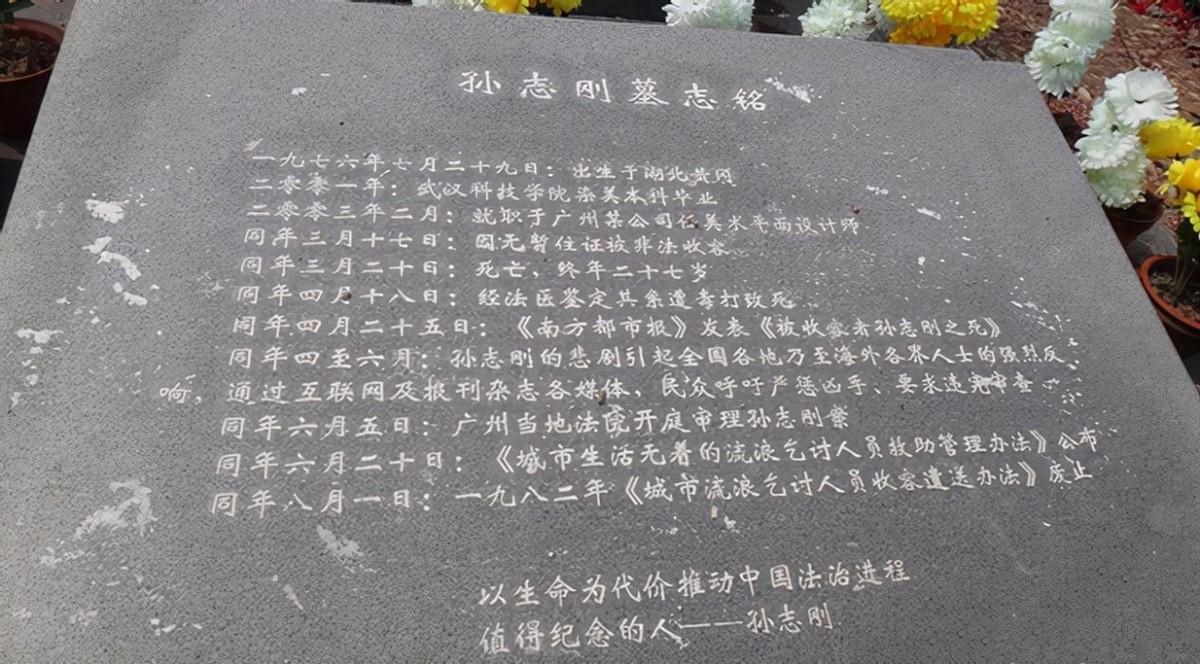 孙志刚墓志铭
一九七六年七月二十九日：出生于湖北黄冈
二零零一年：武汉科技学院染美本科毕业
二零零三年二月：就职于广州某公司任美术平面设计师
同年三月十七日：因无暂住证被非法收容
同年三月二十日：死亡、终年二十七岁
同年四月十八日：经法医鉴定其系遭毒打致死
同年四月二十五日：《南方都市报》发表《被收容者孙志刚之死》
同年四至六月：孙志刚的悲剧引起全国各地乃至海外各界人士的强烈反
响，通过互联网及报刊杂志各媒体、民众呼吁严惩凶手、要求违宪审查
同年六月五日：广州当地法院开庭审理孙志刚案
同年六月二十日：《城市生活无着的流浪乞讨人员救助管理办法》公布
同年八月一日：一九八二年《城市流浪乞讨人员收容遣送办法》废止
以生命为代价推动中国法治进程
值得纪念的人——孙志刚